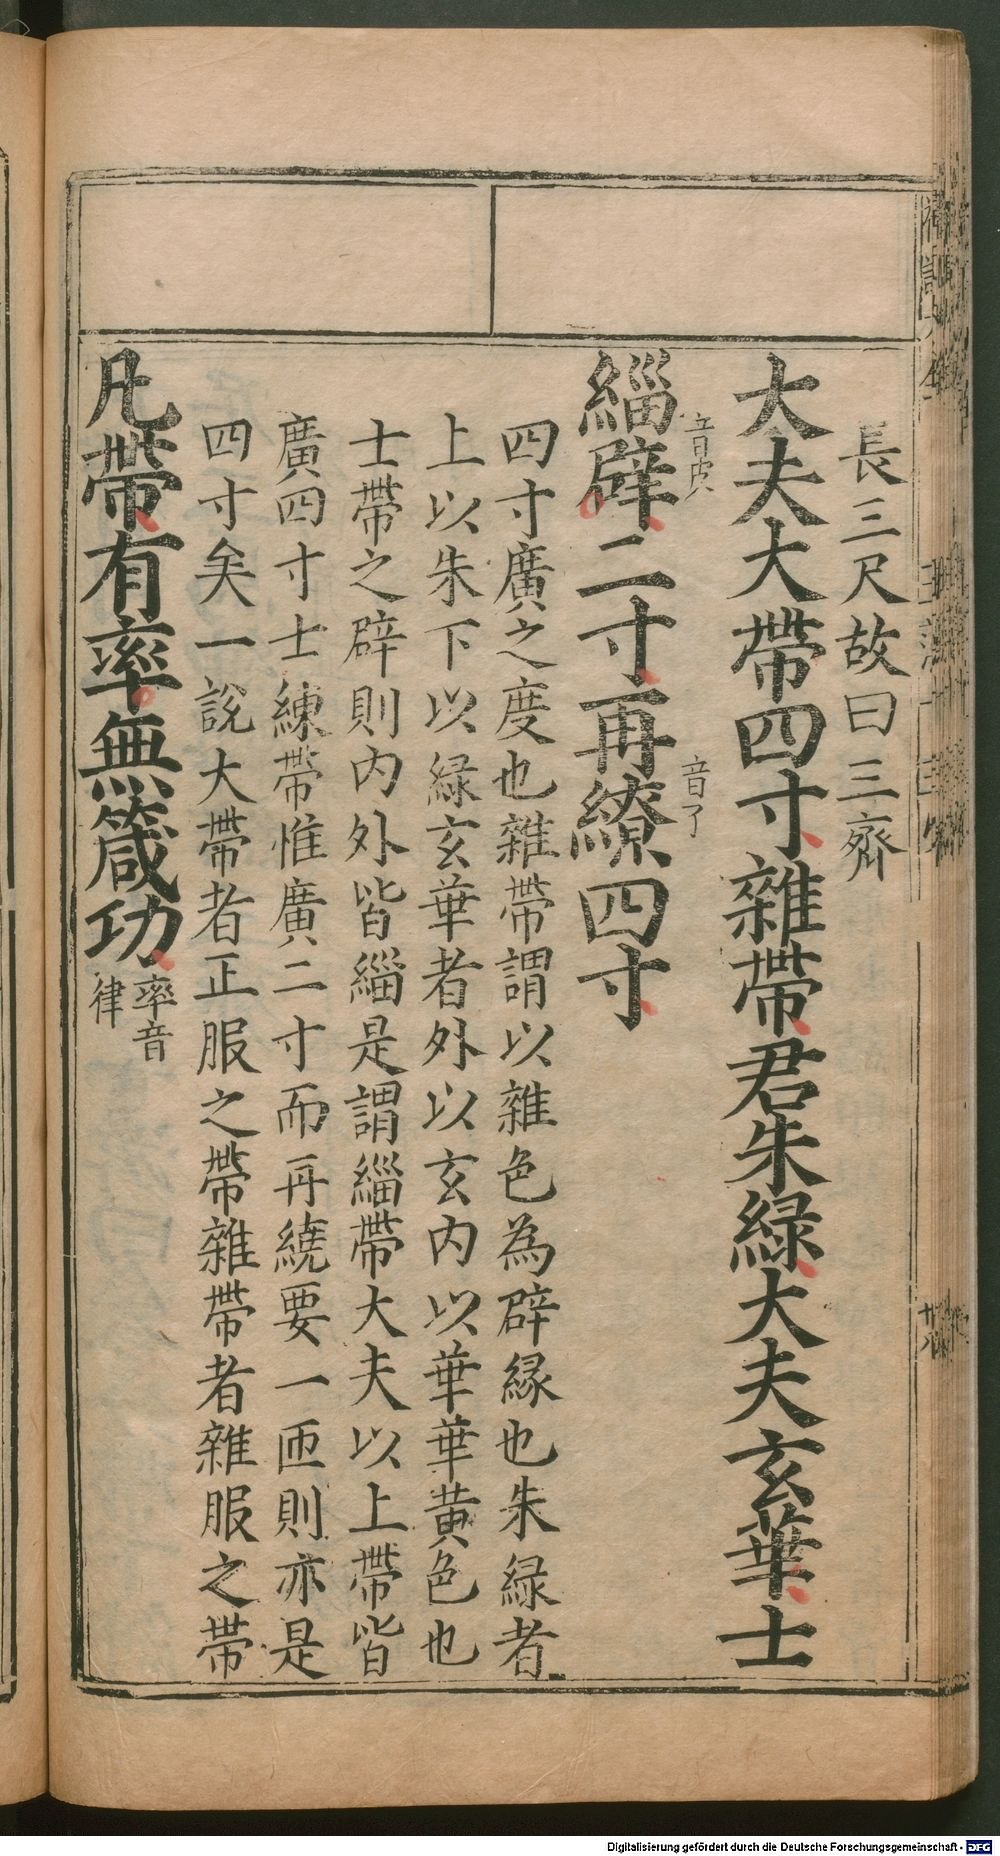 長三尺故曰三齊
大夫大帶四寸雜帶君朱綠大夫玄華士
緇辟音皮二寸再繚音了四寸
四寸廣之度也雜帶謂以雜色為辟緣也朱綠者
上以朱下以綠玄華者外以玄內以華華黃色也
士帶之辟則內外皆緇是謂緇帶大夫以上帶皆
廣四寸士練帶惟廣二寸而再繞要一匝則亦是
四寸矣一說大帶者正服之帶雜帶者雜服之帶
凡帶有率無箴功率音律
Digitalisierung gefördert durch die Deutsche Forschungsgemeinschaft - DFG